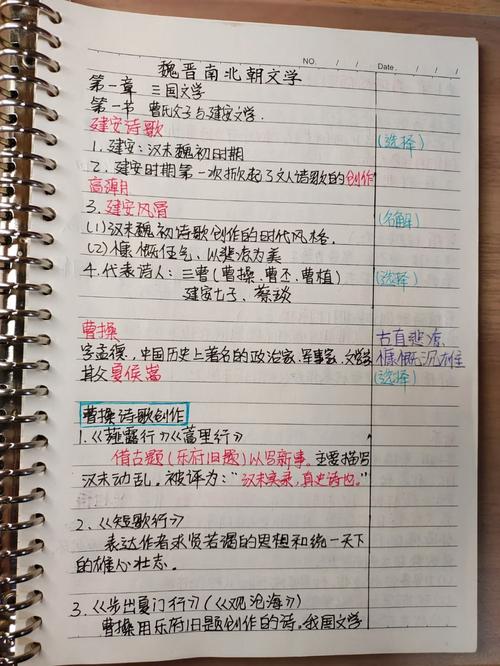 NO.
Date
魏晋南北朝文学
第一章 三国文学
第一节 曹氏父子与建安文学.
建安诗歌
(选择)
1. 建安:汉末魏初时期
2. 建安时期第一次掀起了文人诗歌的创作
高潮
3. 建安风骨
(名解)
(1)汉末魏初诗歌创作的时代风格.
(2)慷慨任气,以悲凉为美
4. 代表诗人:三曹(曹操、曹丕、曹植)
(选择)
建安七子、蔡琰
曹操
古直悲凉
字孟德,中国历史上著名的政治家、军事家、文学家
慷慨沉雄
其父夏侯嵩
(选择)
曹操诗歌创作
1.《薤露行》《蒿里行》
借古题(乐府旧题)以写新事。主要描写
汉末动乱。被评为:“汉末实录,真史诗也。”
2.《短歌行》
表达作者求贤若渴的思想和统一天下
的雄心壮志.
3.《步出夏门行》(《观沧海》)
曹操用乐府旧题创作的诗。我国文学